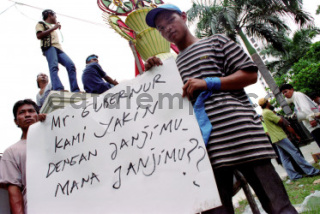 Mr. GUBERNUR
KAMI YAKIN
DENGAN JANJIMU
MANA JANJIMU??